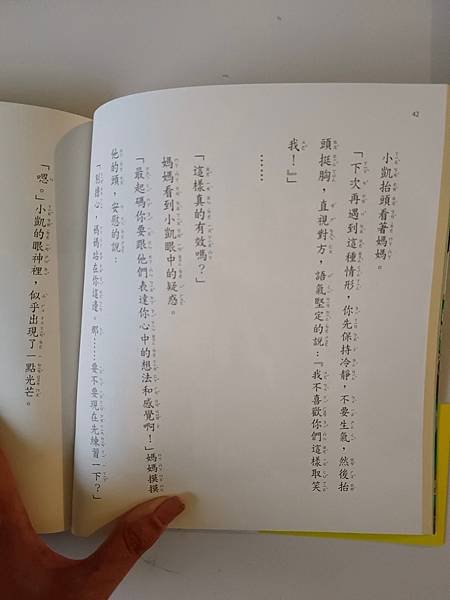 42
小凱抬頭看著媽媽。
「下次再遇到這種情形，你先保持冷靜，不要生氣，然後抬
頭挺胸，直視對方，語氣堅定的說：『我不喜歡你們這樣取笑
我！』」
……
「這樣真的有效嗎？」
媽媽看到小凱眼中的疑惑。
「最起碼你要跟他們表達你心中的想法和感覺啊！」媽媽摸摸
他的頭，安慰的說：
「別擔心，媽媽站在你這邊。那……要不要現在先練習一下？」
「嗯。」小凱的眼神裡，似乎出現了一點光芒。